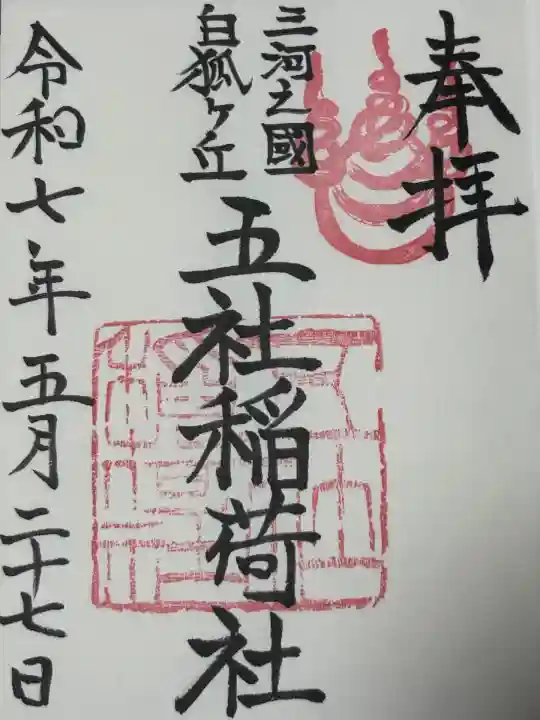 奉拝
三河之國
白狐ヶ丘
五社稲荷社
令和七年五月二十七日